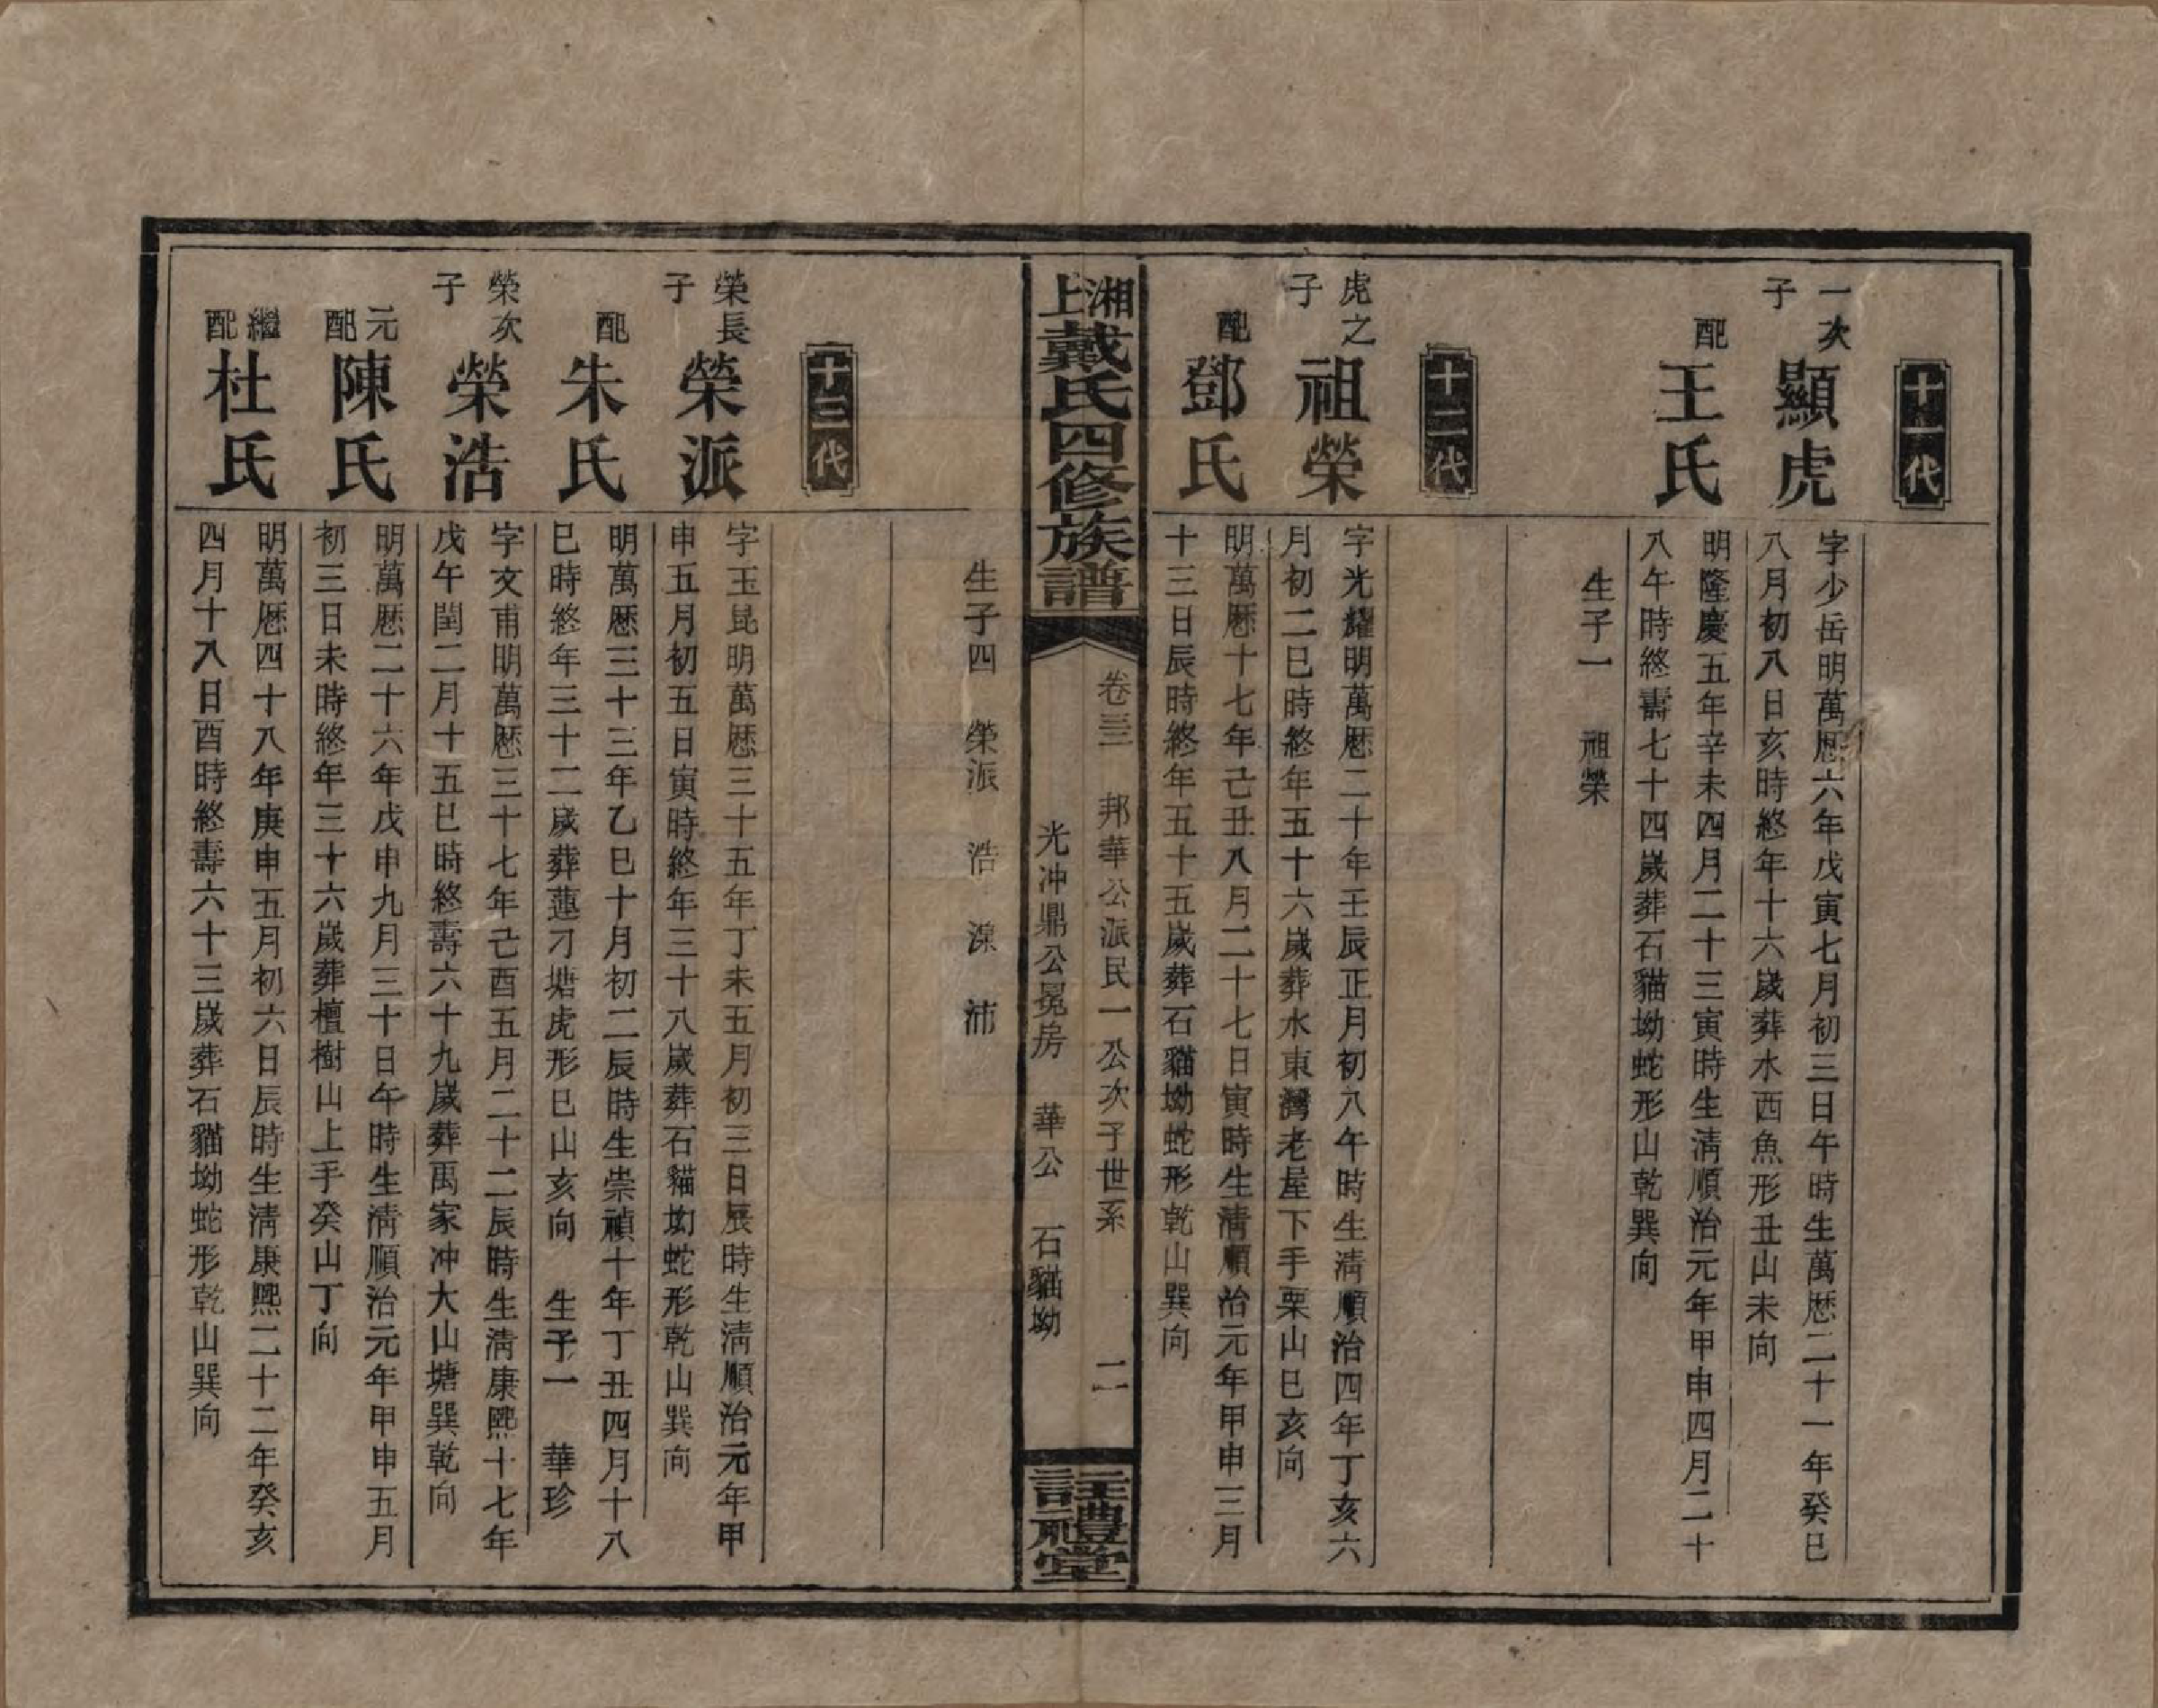 十一代
一次子
顯虎
字少岳明萬厯六年戊寅七月初三日午時生萬厯二十一年癸巳
八月初八日亥時終年十六歲葬水西魚形丑山未向
配
王氏
明隆慶五年辛未四月二十三寅時生淸順治元年甲申四月二十
八午時終壽七十四歲葬石貓坳蛇形山乾巽向
生子一 祖榮
十二代
虎之子
祖榮
字光耀明萬厯二十年壬辰正月初八午時生淸順治四年丁亥六
月初二巳時終年五十六歲葬水東灣老屋下手栗山巳亥向
配
鄧氏
明萬厯十七年己丑八月二十七日寅時生淸順治元年甲申三月
十三日辰時終年五十五歲葬石貓坳蛇形乾山巽向
湘上戴氏四修族譜
卷三 邦華公派民一公次子世系 二
光冲鼎公冕房 華公 石貓坳
註禮堂
生子四 榮派 浩 濴 沛
十三代
榮長子
榮派
字玉昆明萬厯三十五年丁未五月初三日辰時生淸順治元年甲
申五月初五日寅時終年三十八歲葬石貓坳蛇形乾山巽向
配
朱氏
明萬厯三十三年乙巳十月初二辰時生崇禎十年丁丑四月十八
巳時終年三十二歲葬蓮刁塘虎形巳山亥向 生子一 華珍
榮次子
榮浩
字文甫明萬厯三十七年己酉五月二十二辰時生淸康熙十七年
戊午閏二月十五巳時終壽六十九歲葬禹家冲大山塘巽乾向
元配
陳氏
明萬厯二十六年戊申九月三十日午時生淸順治元年甲申五月
初三日未時終年三十六歲葬檀樹山上手癸山丁向
繼配
杜氏
明萬厯四十八年庚申五月初六日辰時生淸康熙二十二年癸亥
四月十八日酉時終壽六十三歲葬石貓坳蛇形乾山巽向